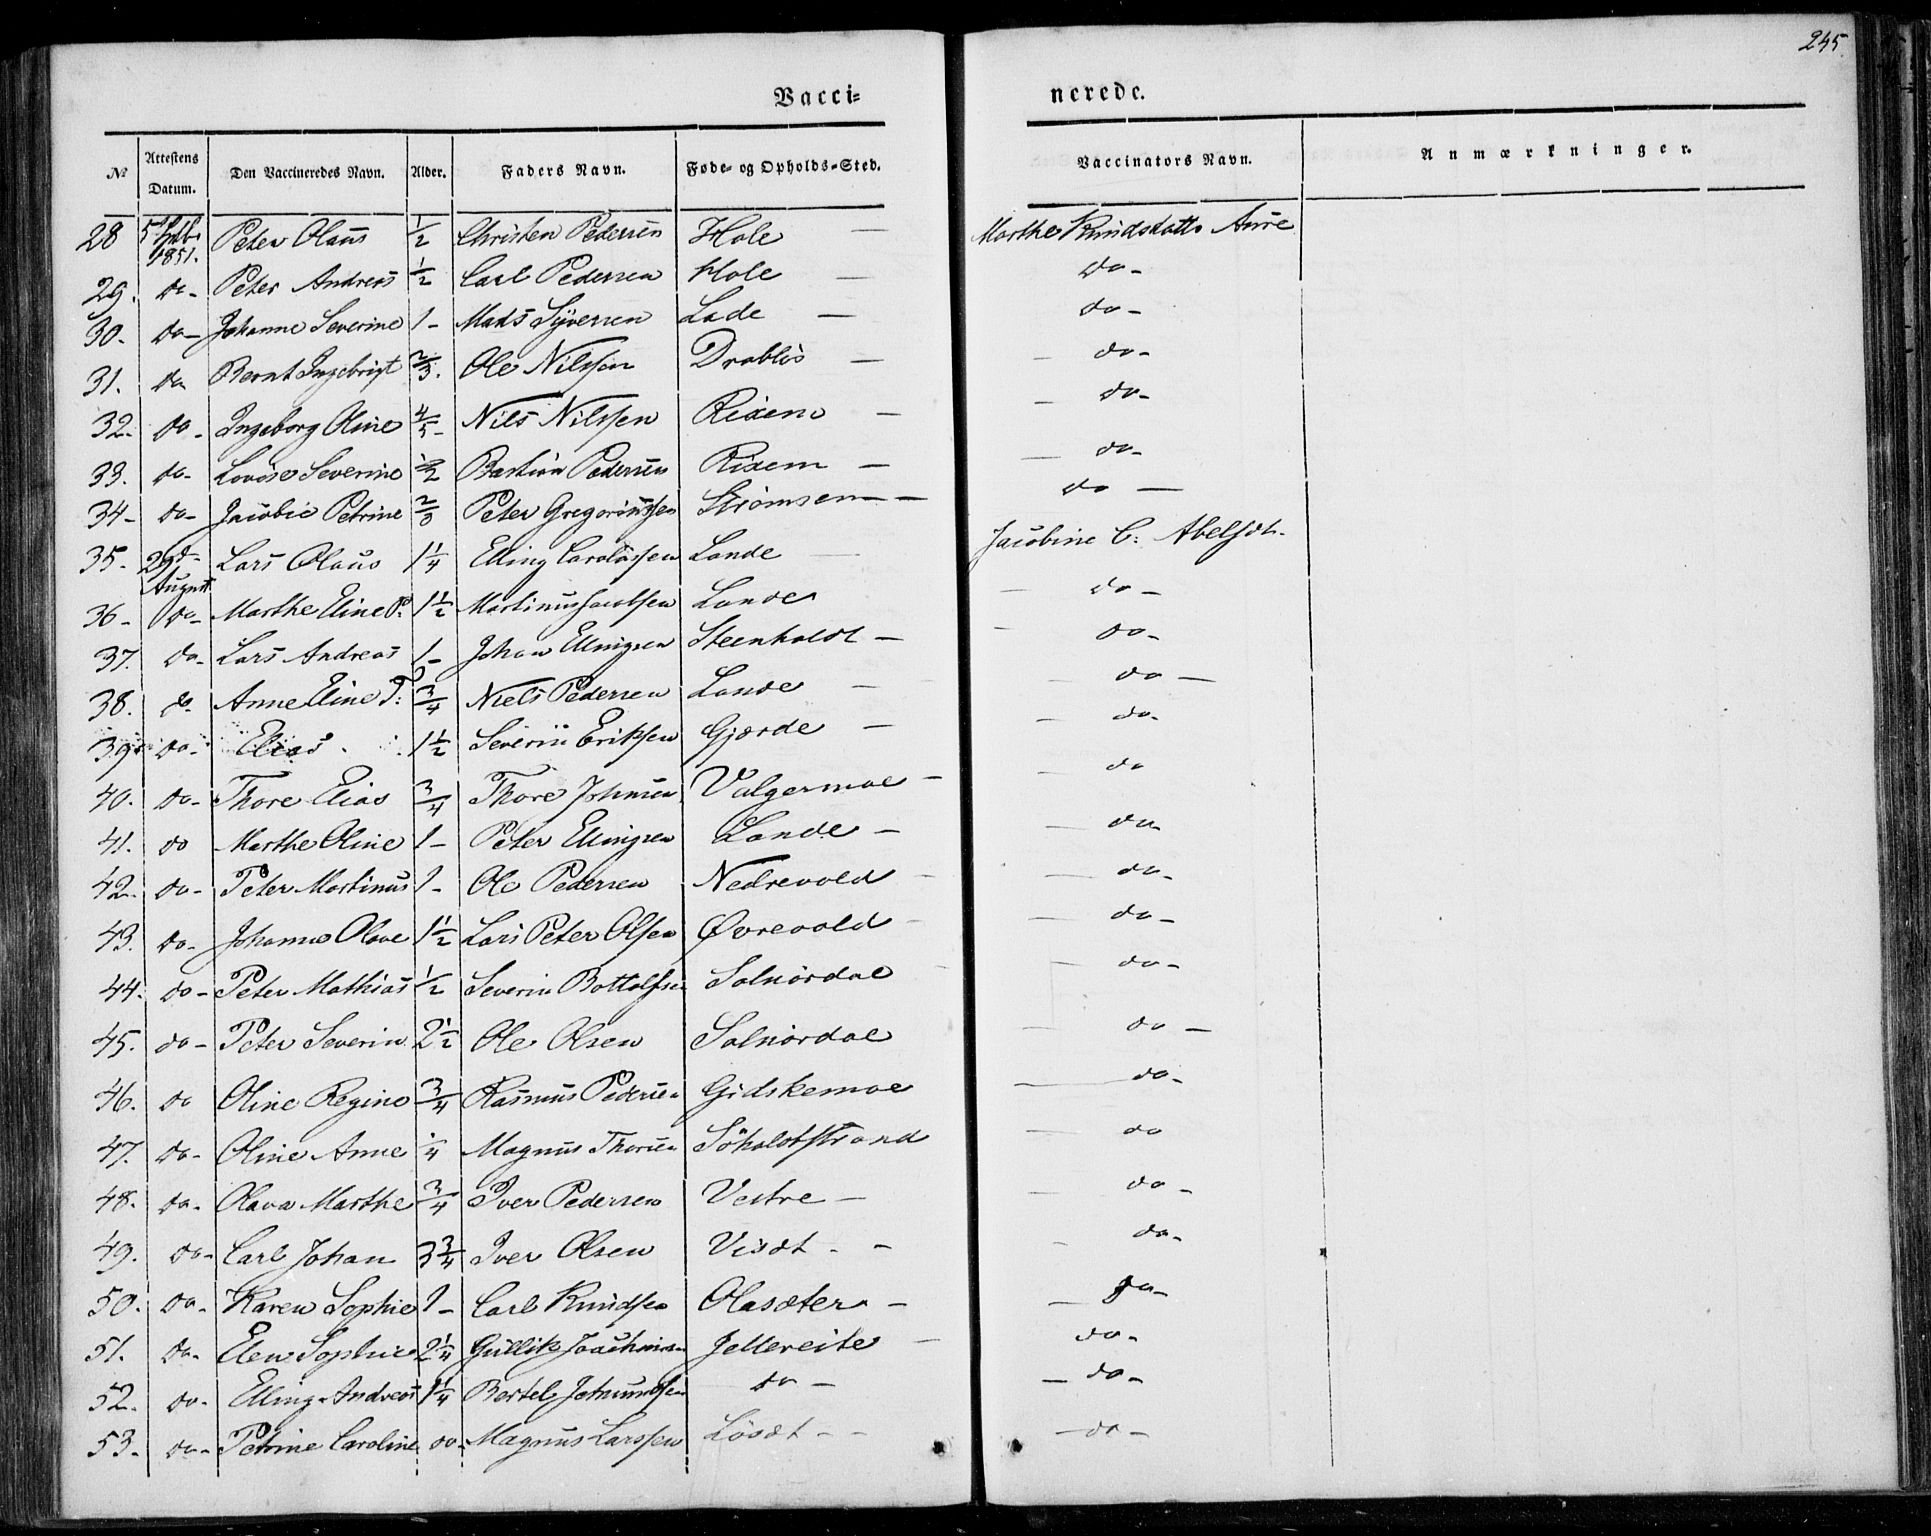 245.
Vacci= nerede.
№ Attestens Datum. Den Vaccineredes Navn. Alder. Faders Navn. Føde- og Opholds-Sted. Vaccinators Navn. Anmærkninger.
28 5 1851. Peter Olaus 1/2 Christen Pedersen Hole — Marthe Knudsdatter Aure
29. do- Peter Andreas 1/2 Carl Pedersen Hole — do-
30- do- Johanne Severine 1- Mads Syversen Lade — do-
31. do Bernt Ingebrigt 2/3. Ole Nilssen Drabløs — do-
32. do- Ingeborg Oline 4/5- Nils Nilssen Rixem — do-
33. do- Lovise Severine 1/2 Bastian Pedersen Rixem — do-
34- do- Jacobie Petrine 2/3 Peter Gregoriussen Strømsem — do —
35- 29de August Lars Olaus 1 1/4 Elling Carolussen Lande — Jacobine C: Abelsdt.
36- do- Marthe Eline P. 1 1/2 Martinus Jacobsen Lande — do-
37. do- Lars Andreas 1- Johan Ellingsen Steenholdt — do-
38. do- Anne Eline P: 3/4 Niels Pedersen Lande — do —
39. do- Elias 1 1/2 Severin Eriksen Gjærde — do-
40. do- Thore Elias 3/4 Thore Johnsen Valgermoe — do
41. do Marthe Oline 1- Peter Ellingsen Lande — do-
42. do- Peter Martinus 1- Ole Pedersen Nedrevold — do-
43. do- Johanne Olave 1 1/2 Lars Peter Olsen Øvrevold — do-
44. do- Peter Mathias 1/2 Severin Bottolfsen Solnørdal — do-
45. do- Peter Severin 2 1/2 Ole Olsen Solnørdal — do —
46. do Oline Regine 3/4 Rasmus Pedersen Gidskemoe — do-
47. do- Oline Anne 1/4 Magnus Thorsen Søholdtstrand — do
48. do- Olava Marthe 3/4 Iver Pedersen Vestre — do-
49. do- Carl Johan 3 3/4 Iver Olsen Viset - - do-
50. do- Karen Sophie 1- Carl Knudsen Olasæter - — do-
51. do- Elen Sophie 2 1/4 Gullik Joachimsen Jellereite — do-
52. do- Elling Andreas 1 1/4 Bertel Johnsen do — do-
53. do- Petrine Caroline do- Magnus Larssen Løset - - —do-